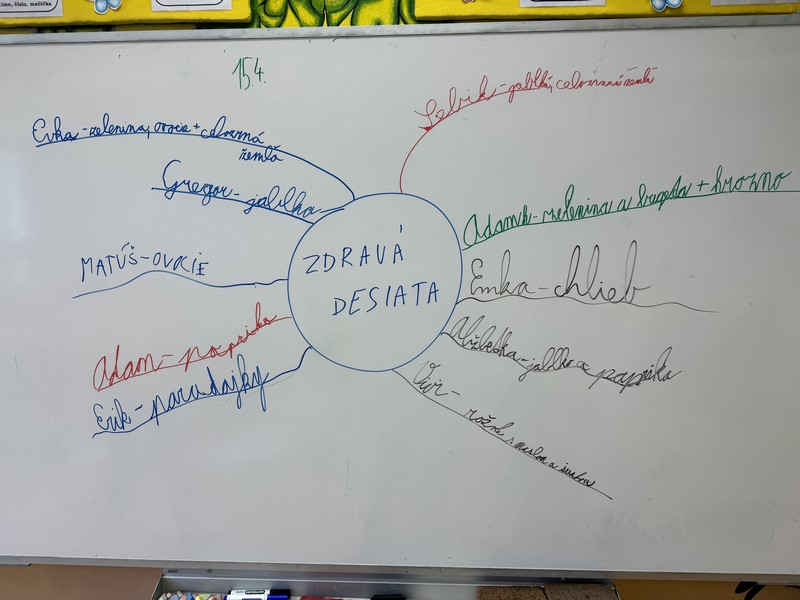 15.4.
Evka-zelenina, ovocie + celozrnná
žemľa
Gregor-jablko
MATÚŠ-OVOCIE
Adam-paprika
Erik-paradajky
ZDRAVÁ
DESIATA
jablká, celozrnná žemľa
Adamk-zelenina a bageta + hrozno
Emka-chlieb
Alžbetka-jablko a paprika
rožok s maslom a